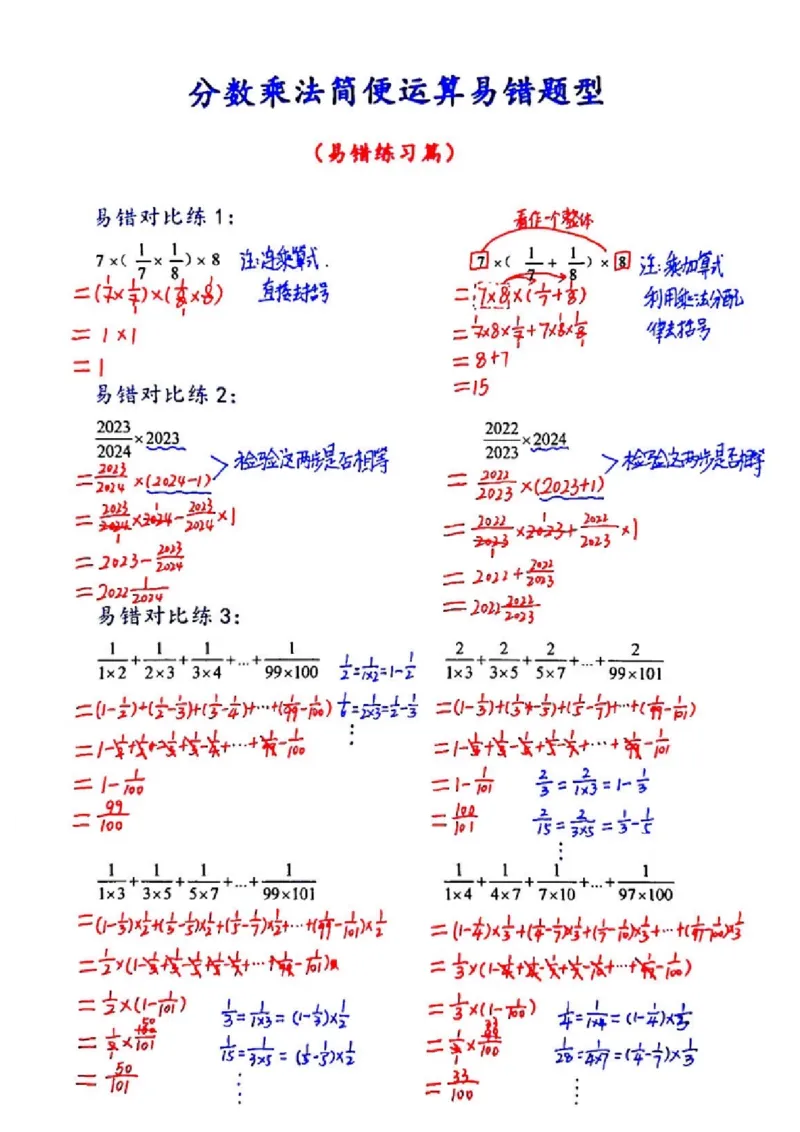 分数乘法简便运算易错题型
(易错练习篇)
易错对比练 1:
7×(1/7×1/8)×8 注:连乘算式.
直接去括号
=(7×1/7)×(1/8×8)
= 1×1
=1
看作一个整体
7×(1/7+1/8)×8 注:乘加算式
利用乘法分配
律去括号
=7×8×(1/7+1/8)
=7×8×1/7+7×8×1/8
=8+7
=15
易错对比练 2:
2023/2024×2023
=2023/2024×(2024-1) 检验这两步是否相等
=2023/2024×2024-2023/2024×1
=2023-2023/2024
=2022 1/2024
2022/2023×2024
=2022/2023×(2023+1) 检验这两步是否相等
=2022/2023×2023+2022/2023×1
=2022+2022/2023
=2022 2022/2023
易错对比练 3:
1/1×2+1/2×3+1/3×4+…+1/99×100
1/2=1/1×2=1-1/2
1/6=1/2×3=1/2-1/3
⋮
=(1-1/2)+(1/2-1/3)+(1/3-1/4)+…+(1/99-1/100)
=1-1/2+1/2-1/3+1/3-1/4+…+1/99-1/100
=1-1/100
=99/100
2/1×3+2/3×5+2/5×7+…+2/99×101
=(1-1/3)+(1/3-1/5)+(1/5-1/7)+…+(1/99-1/101)
=1-1/3+1/3-1/5+1/5-1/7+…+1/99-1/101
=1-1/101
=100/101
2/3=2/1×3=1-1/3
2/15=2/3×5=1/3-1/5
⋮
1/1×3+1/3×5+1/5×7+…+1/99×101
=(1-1/3)×1/2+(1/3-1/5)×1/2+(1/5-1/7)×1/2+…+(1/99-1/101)×1/2
=1/2×(1-1/3+1/3-1/5+1/5-1/7+…+1/99-1/101)
=1/2×(1-1/101)
=1/2×100/101
=50/101
1/3=1/1×3=(1-1/3)×1/2
1/15=1/3×5=(1/3-1/5)×1/2
⋮
1/1×4+1/4×7+1/7×10+…+1/97×100
=(1-1/4)×1/3+(1/4-1/7)×1/3+(1/7-1/10)×1/3+…+(1/97-1/100)×1/3
=1/3×(1-1/4+1/4-1/7+1/7-1/10+…+1/97-1/100)
=1/3×(1-1/100)
=1/3×99/100
=33/100
1/4=1/1×4=(1-1/4)×1/3
1/28=1/4×7=(1/4-1/7)×1/3
⋮